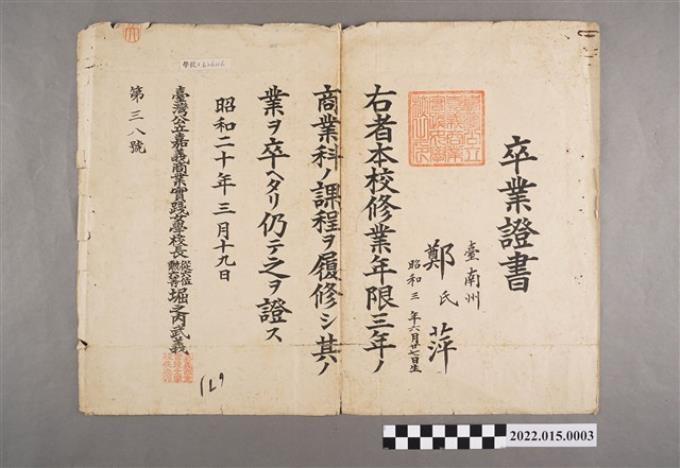 卒業證書
臺南州
鄭氏萍
昭和三年六月廿七日生
右者本校修業年限三年ノ
商業科ノ課程ヲ履修シ其ノ
業ヲ卒ヘタリ仍テ之ヲ證ス
昭和二十年三月十九日
臺灣公立嘉義商業實踐女學校長
從六位
勲六等
堀之内武義
第三八號
2022.015.0003